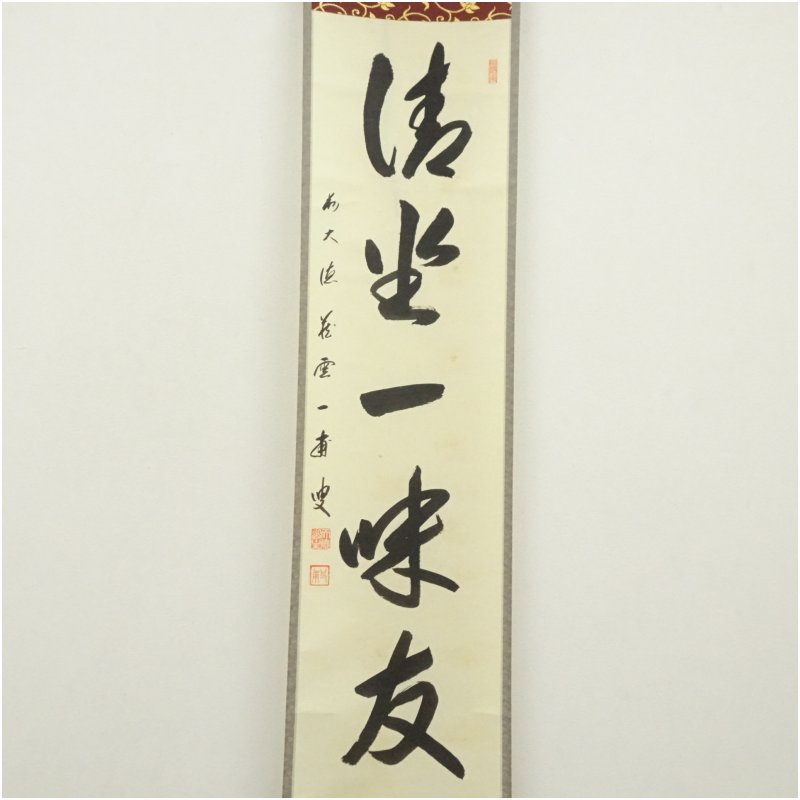 清坐一味友
前大徳 蔵雲一甫叟